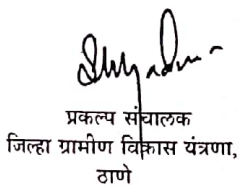 प्रकल्प संचालक
जिल्हा ग्रामीण विकास यंत्रणा,
ठाणे